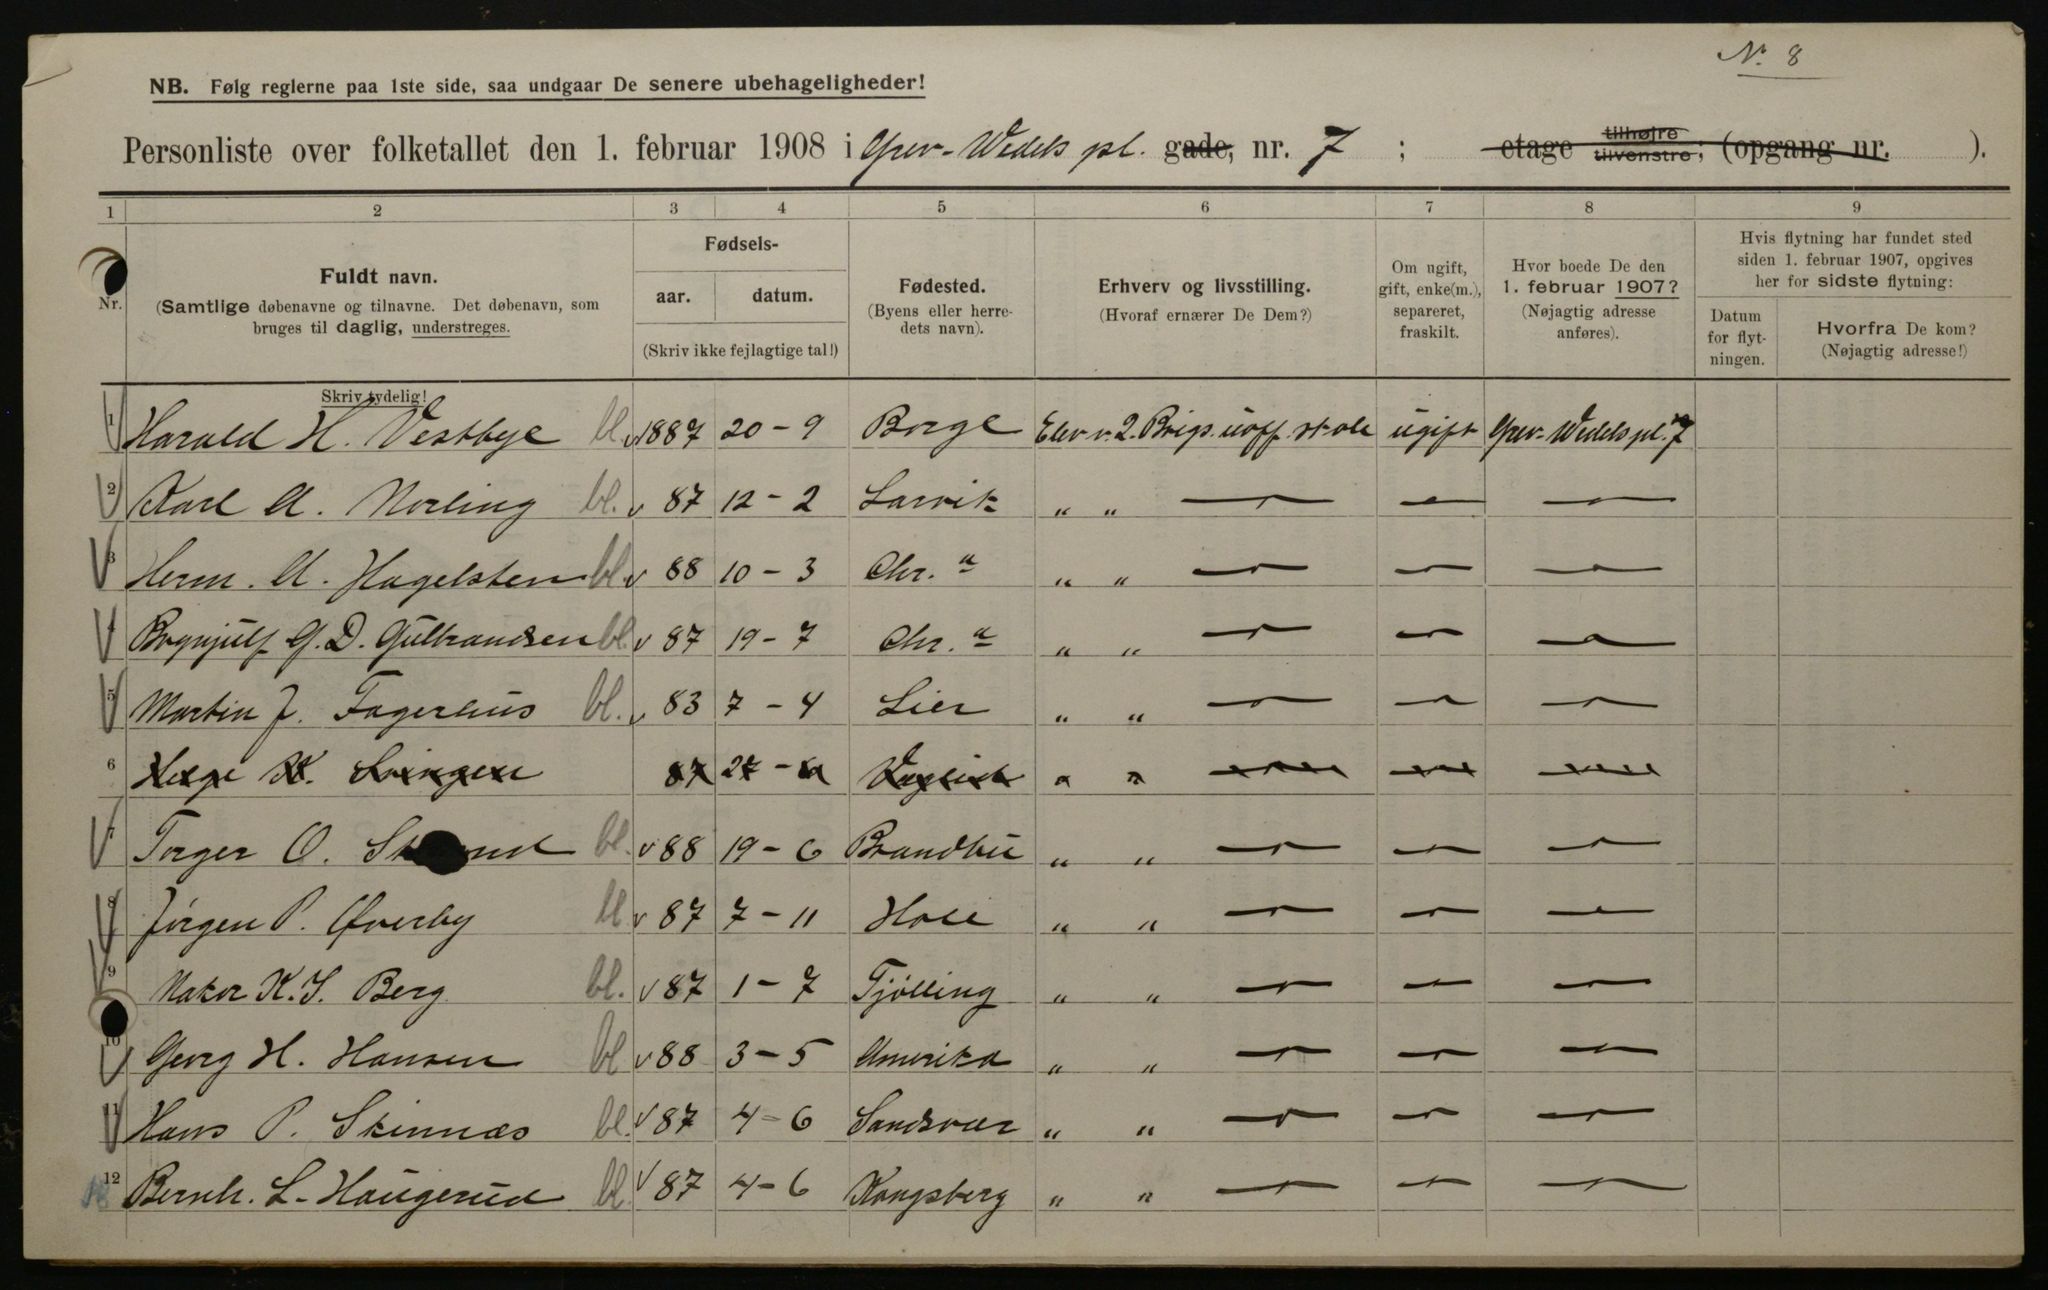 Nr. 8
NB. Følg reglerne paa 1ste side, saa undgaar De senere ubehageligheder!
Personliste over folketallet den 1. februar 1908 i Grev-Wedels pl. gade, nr. 7 ; etage tilhøjre tilvenstre; (opgang nr. ).
1 2 3 4 5 6 7 8 9
Nr.
Fuldt navn.
(Samtlige døbenavne og tilnavne. Det døbenavn, som
bruges til daglig, understreges.
Fødsels-
aar. datum.
(Skriv ikke fejlagtige tal!)
Fødested.
(Byens eller herre-
dets navn).
Erhverv og livsstilling.
(Hvoraf ernærer De Dem?)
Om ugift,
gift, enke(m.),
separeret,
fraskilt.
Hvor boede De den
1. februar 1907?
(Nøjagtig adresse
anføres).
Hvis flytning har fundet sted
siden 1. februar 1907, opgives
her for sidste flytning:
Datum
for flyt-
ningen.
Hvorfra De kom?
(Nøjagtig adresse!)
Skriv tydelig!
1 Harald H. Vestbye bl. v 1887 20-9 Borge Elev v. 2. Brigs. uoff. skole ugift Grev-Wedels pl. 7
2 Karl A. Norling bl. v 87 12-2 Larvik " " — — —
3 Herm. A. Hagelsten bl. v 88 10-3 Chr.a " " — — —
4 Brynjulf G. D. Gulbrandsen bl. v 87 19-7 Chr.a " " — — —
5 Martin J. Fagerlius bl. v 83 7-4 Lier " " — — —
6 Helge K. 87 27- " " — — —
7 Torger O. bl. v 88 19-6 Brandbu " " — — —
8 Jörgen P. Øverby bl. v 87 7-11 Hole " " — — —
9 K. S. Berg bl. v 87 1-7 Tjölling " " — — —
10 Georg H. Hansen bl v 88 3-5 Amerika " " — — —
11 Hans P. Skinnæs bl. v 87 4-6 Sandsvær " " — — —
12 Bernh. L. Haugerud bl. v 87 4-6 Kongsberg " " — — —